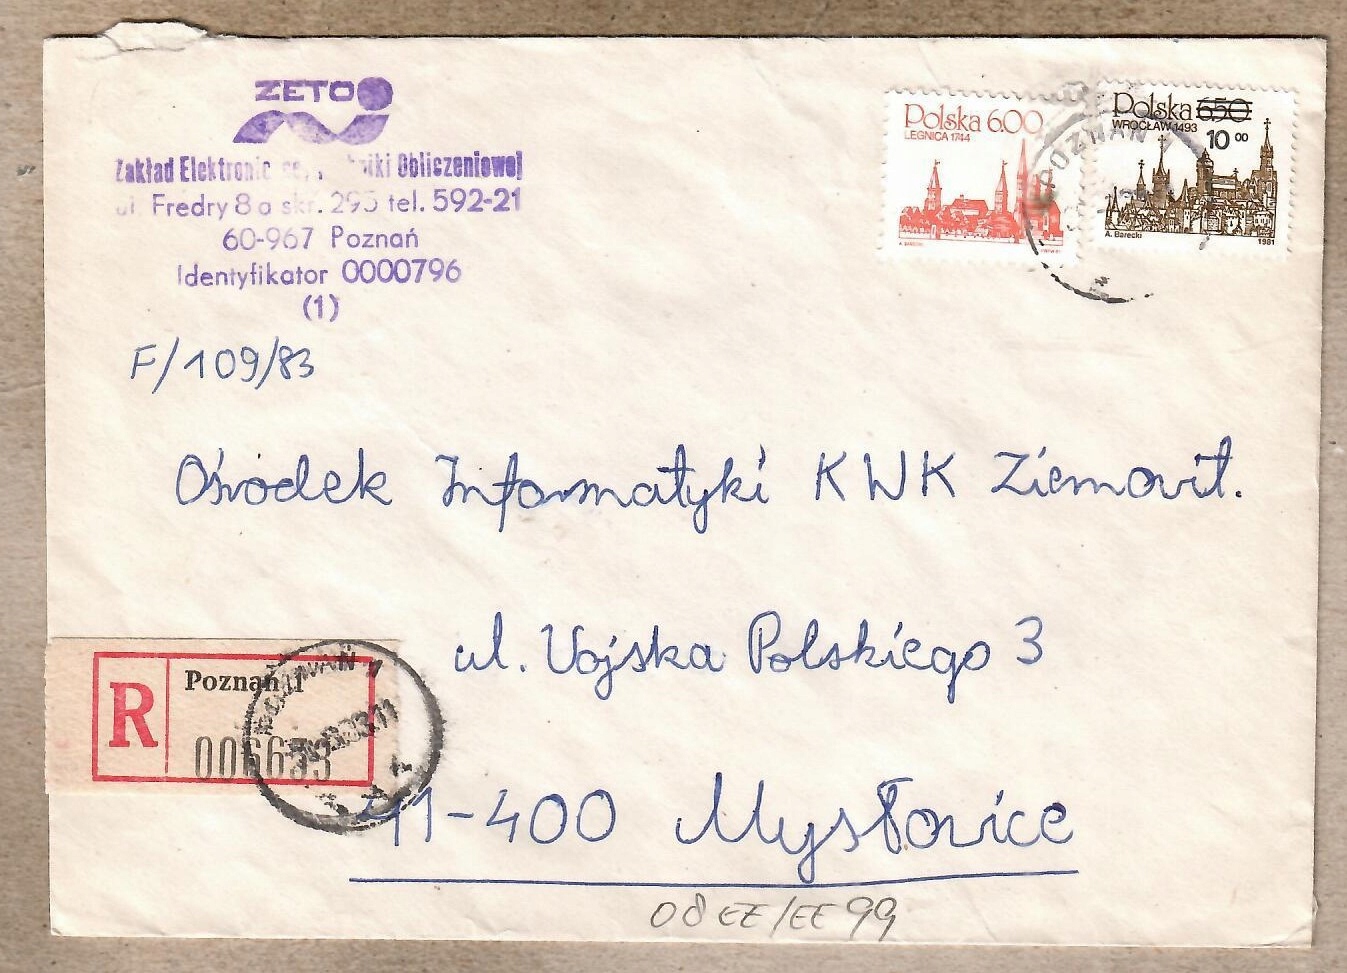 ZETO
Zakład Elektronic Obliczeniowej
ul. Fredry 8a skr. 295 tel. 592-21
60-967 Poznań
Identyfikator 0000796
(1)
F/109/83
Polska 6.00
LEGNICA 1744
Polska 6.50
WROCŁAW 1493
10 00
A. Barecki
1981
POZNAŃ 1
Ośrodek Informatyki KWK Ziemowit.
ul. Wojska Polskiego 3
41-400 Mysłowice
R
Poznań 1
006653
POZNAŃ 1
08 EE/EE 99